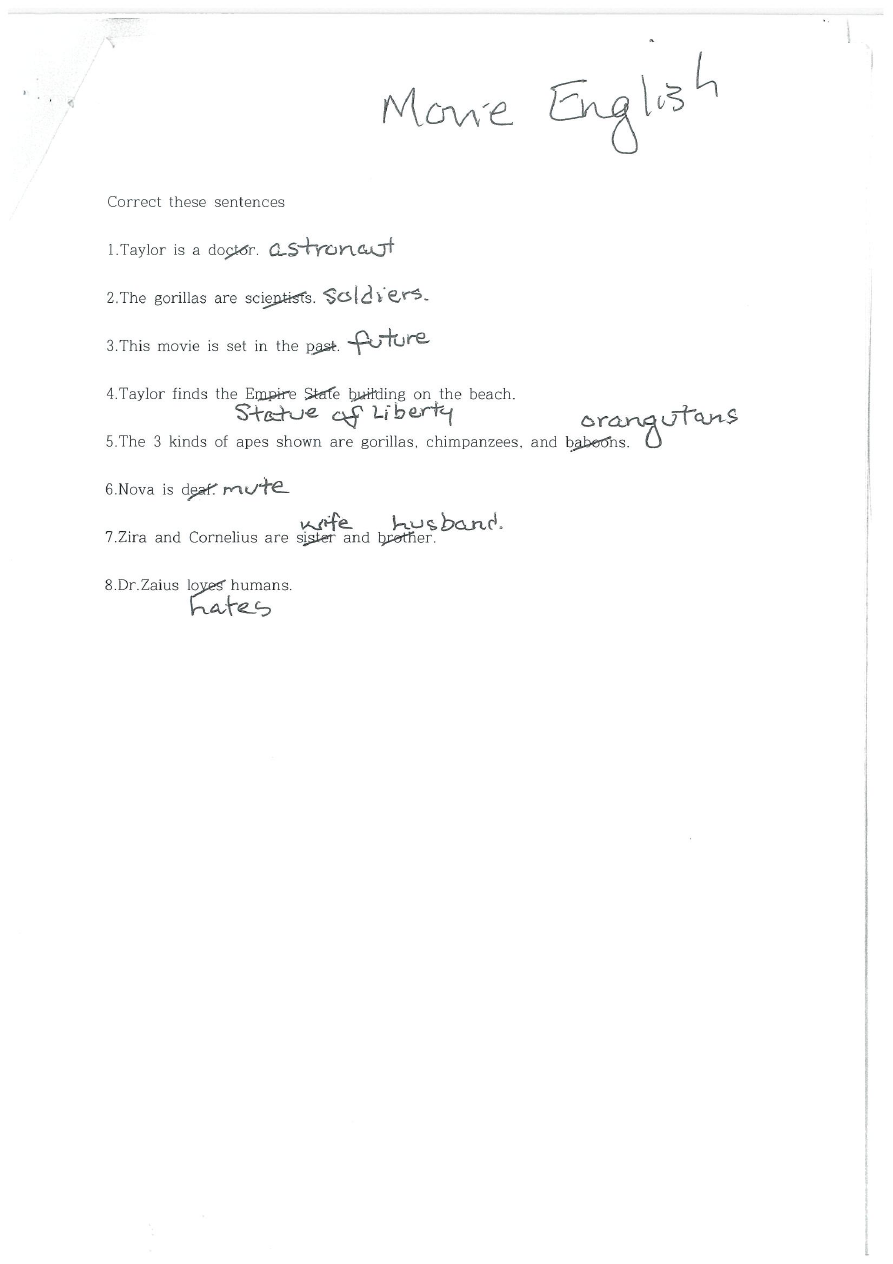 Movie English
Correct these sentences
1.Taylor is a doctor. astronaut
2.The gorillas are scientists. soldiers.
3.This movie is set in the past. future
4.Taylor finds the Empire State building on the beach.
Statue of Liberty
orangutans
5.The 3 kinds of apes shown are gorillas, chimpanzees, and baboons.
6.Nova is deaf. mute
wife husband.
7.Zira and Cornelius are sister and brother.
8.Dr.Zaius loves humans.
hates